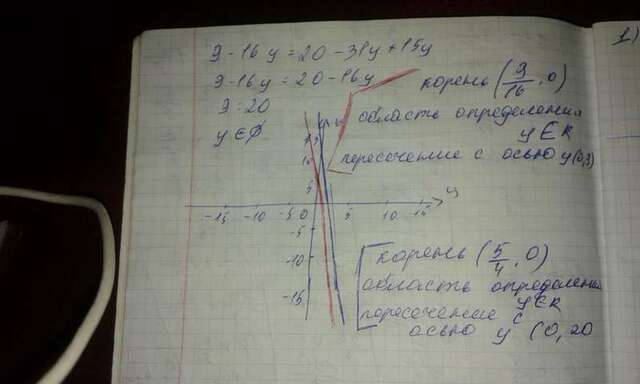 9 - 16y = 20 - 31y + 15y
9 - 16y = 20 - 16y
9 = 20
y ∈ ∅
корень (9/16, 0)
область определения
y ∈ R
пересечение с осью y (0,9)
15
10
5
-15 -10 -5 0 5 10 15
y
-5
-10
-15
корень (5/4, 0)
область определения
y ∈ R
пересечение с
осью y (0, 20
1)